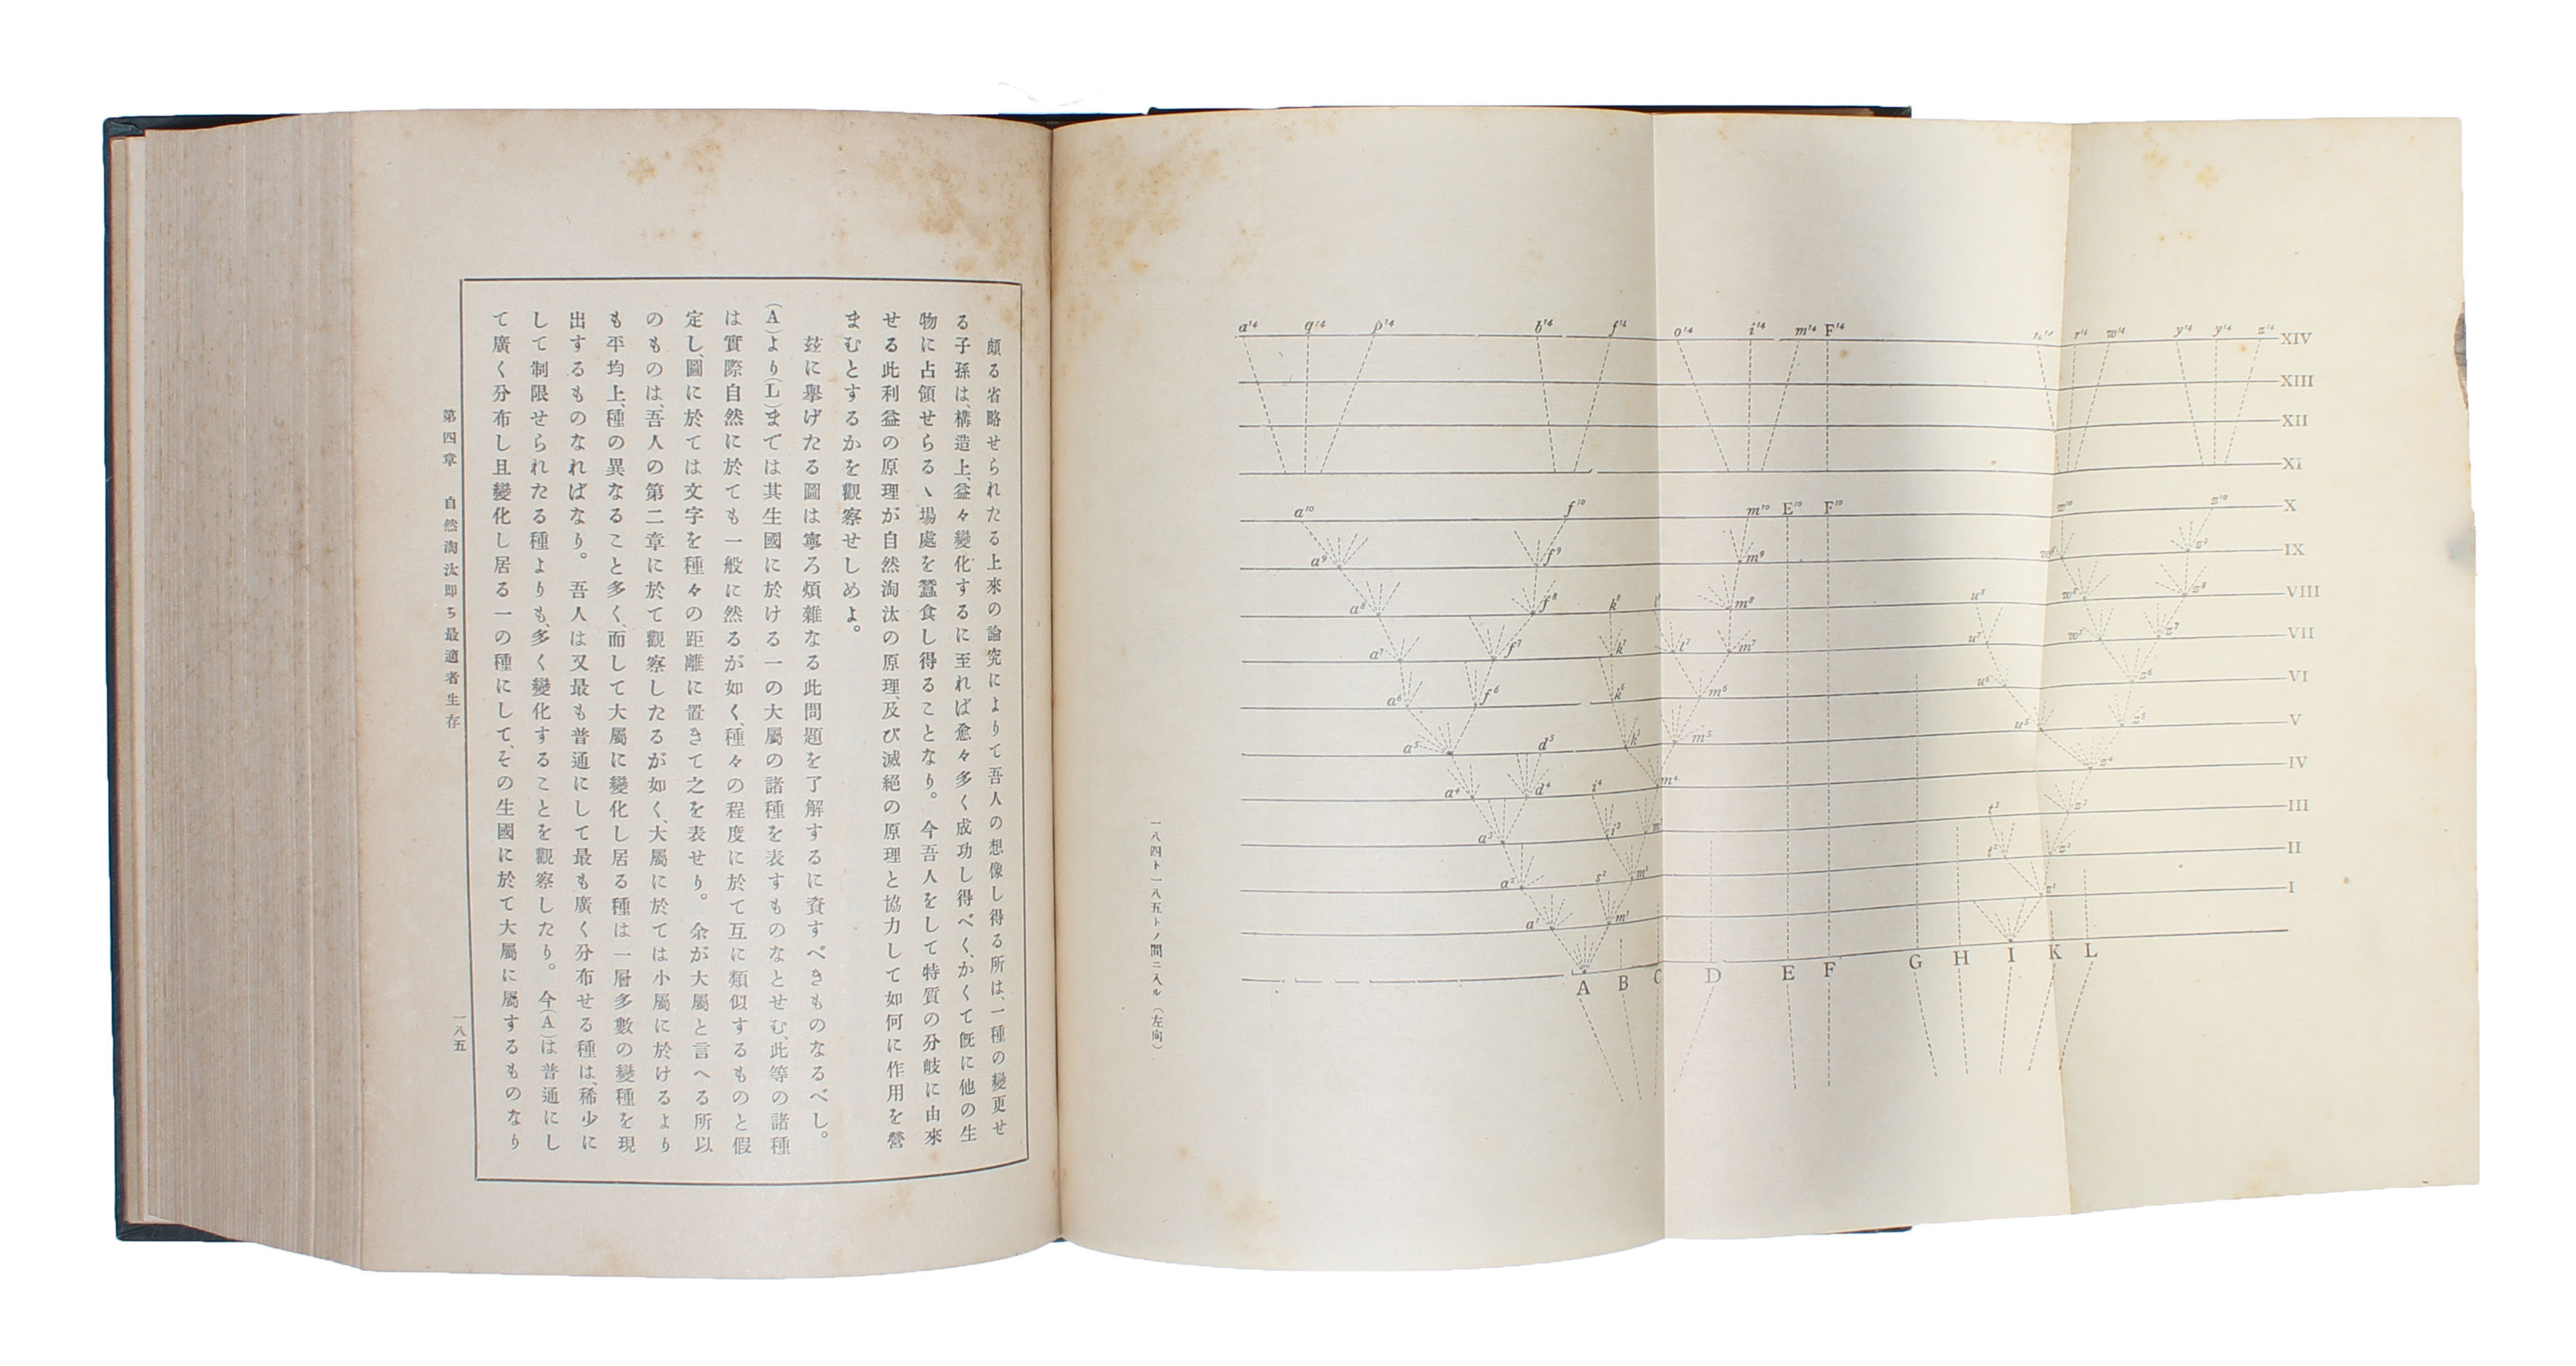 頗る省略せられたる上來の論究によりて吾人の想像し得る所は、一種の變更せ
る子孫は、構造上、益々變化するに至れば愈々多く成功し得べく、かくて既に他の生
物に占領せらるゝ場處を蠶食し得ることなり。今吾人をして特質の分岐に由來
せる此利益の原理が自然淘汰の原理、及び滅絶の原理と協力して如何に作用を營
まむとするかを觀察せしめよ。
茲に擧げたる圖は寧ろ煩雜なる此問題を了解するに資すべきものなるべし。
(A)より(L)までは其生國に於ける一の大屬の諸種を表すものなとせむ、此等の諸種
は實際自然に於ても一般に然るが如く、種々の程度に於て互に類似するものと假
定し、圖に於ては文字を種々の距離に置きて之を表せり。余が大屬と言へる所以
のものは、吾人の第二章に於て觀察したるが如く、大屬に於ては小屬に於けるより
も平均上、種の異なること多く、而して大屬に變化し居る種は一層多數の變種を現
出するものなればなり。吾人は又最も普通にして最も廣く分布せる種は、稀少に
して制限せられたる種よりも、多く變化することを觀察したり。今(A)は普通にし
て廣く分布し且變化し居る一の種にして、その生國に於て大屬に屬するものなり
第四章 自然淘汰即ち最適者生存
一八五
一八四ト一八五トノ間ニ入ル(左向)
a¹⁴ q¹⁴ p¹⁴ b¹⁴ f¹⁴ o¹⁴ i¹⁴ m¹⁴ F¹⁴ r¹⁴ w¹⁴ y¹⁴ y¹⁴ z¹⁴ XIV
XIII
XII
XI
a¹⁰ f¹⁰ m¹⁰ E¹⁰ F¹⁰ w¹⁰ z¹⁰ X
a⁹ f⁹ m⁹ w⁹ z⁹ IX
a⁸ f⁸ k⁸ l⁸ m⁸ u⁸ w⁸ z⁸ VIII
a⁷ f⁷ k⁷ l⁷ m⁷ u⁷ w⁷ z⁷ VII
a⁶ f⁶ k⁶ m⁶ u⁶ z⁶ VI
a⁵ d⁵ k⁵ m⁵ u⁵ z⁵ V
a⁴ d⁴ i⁴ m⁴ z⁴ IV
a³ i³ m t³ z³ III
a² s² m² t² z² II
a¹ m¹ z¹ I
A B C D E F G H I K L